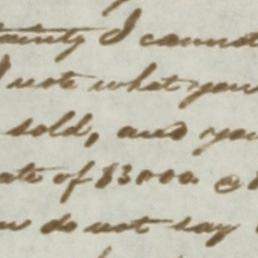 tainty I cannot
I note what you
sold, and you
ate of $3000. @
do not say